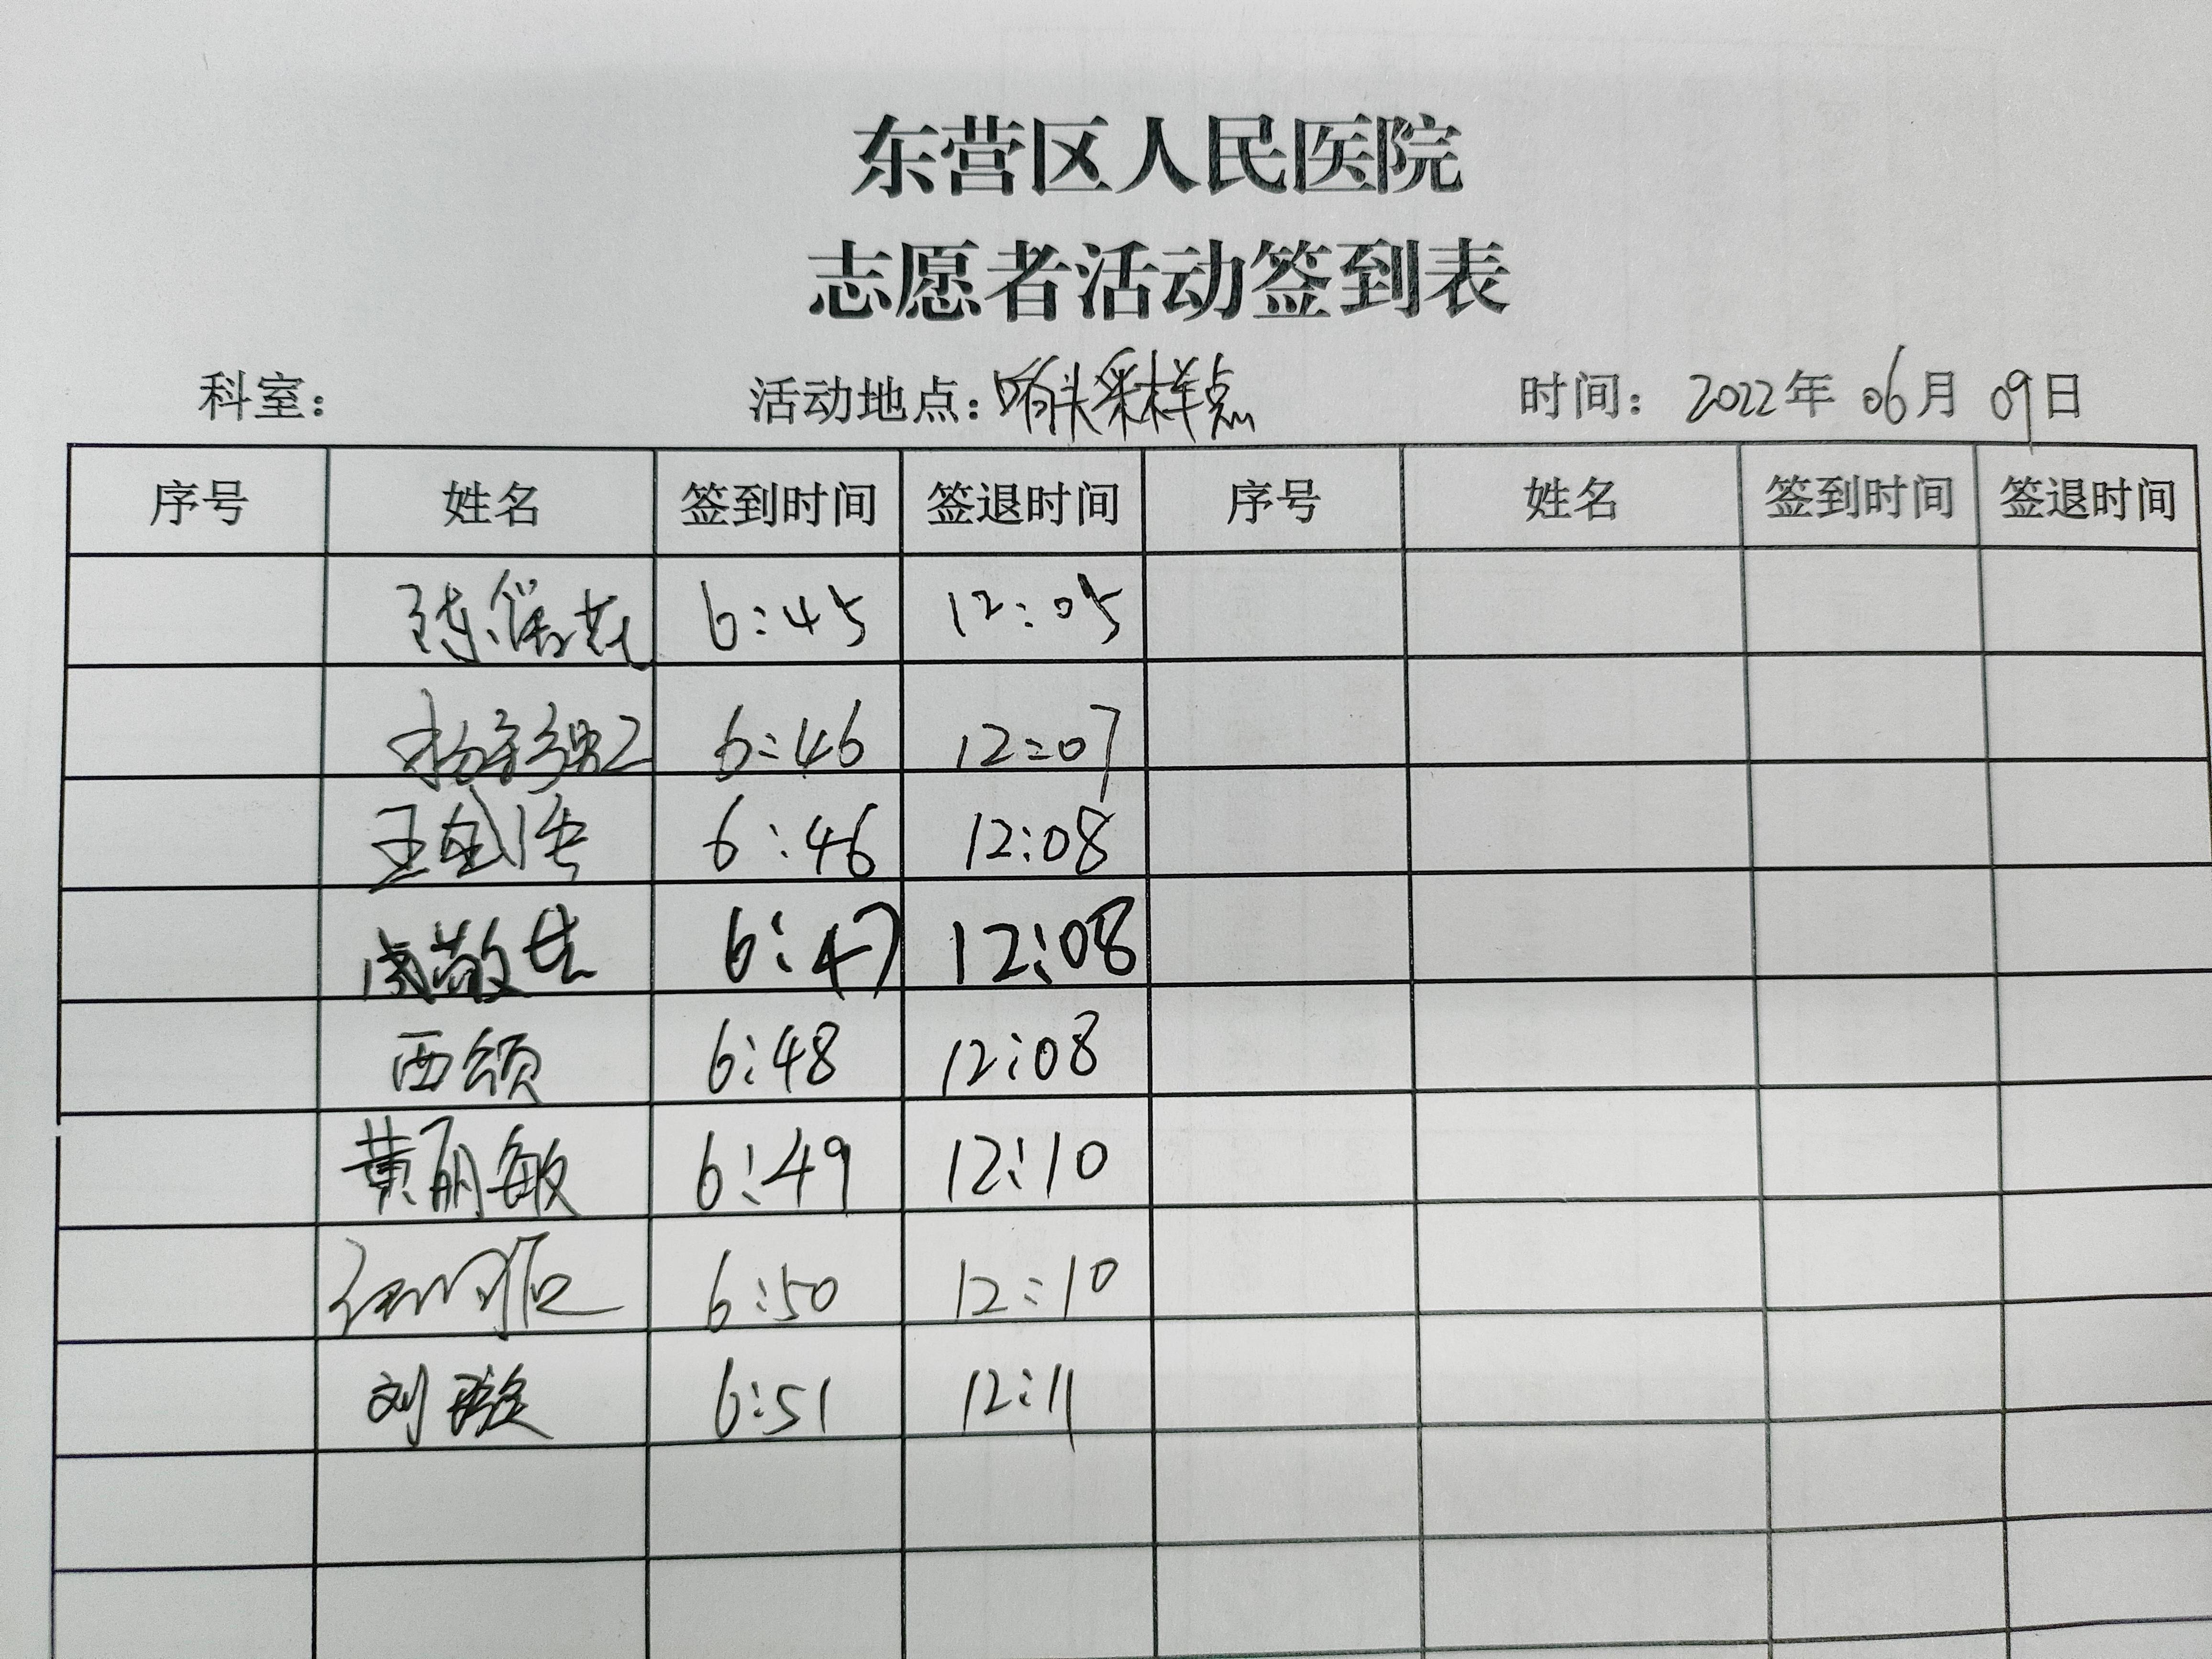 东营区人民医院
志愿者活动签到表
科室： 活动地点：哨头采样点 时间：2022年06月09日
序号 姓名 签到时间 签退时间 序号 姓名 签到时间 签退时间
6:45 12:05
6:46 12:07
6:46 12:08
6:47 12:08
西颂 6:48 12:08
黄丽敏 6:49 12:10
6:50 12:10
刘璇 6:51 12:11